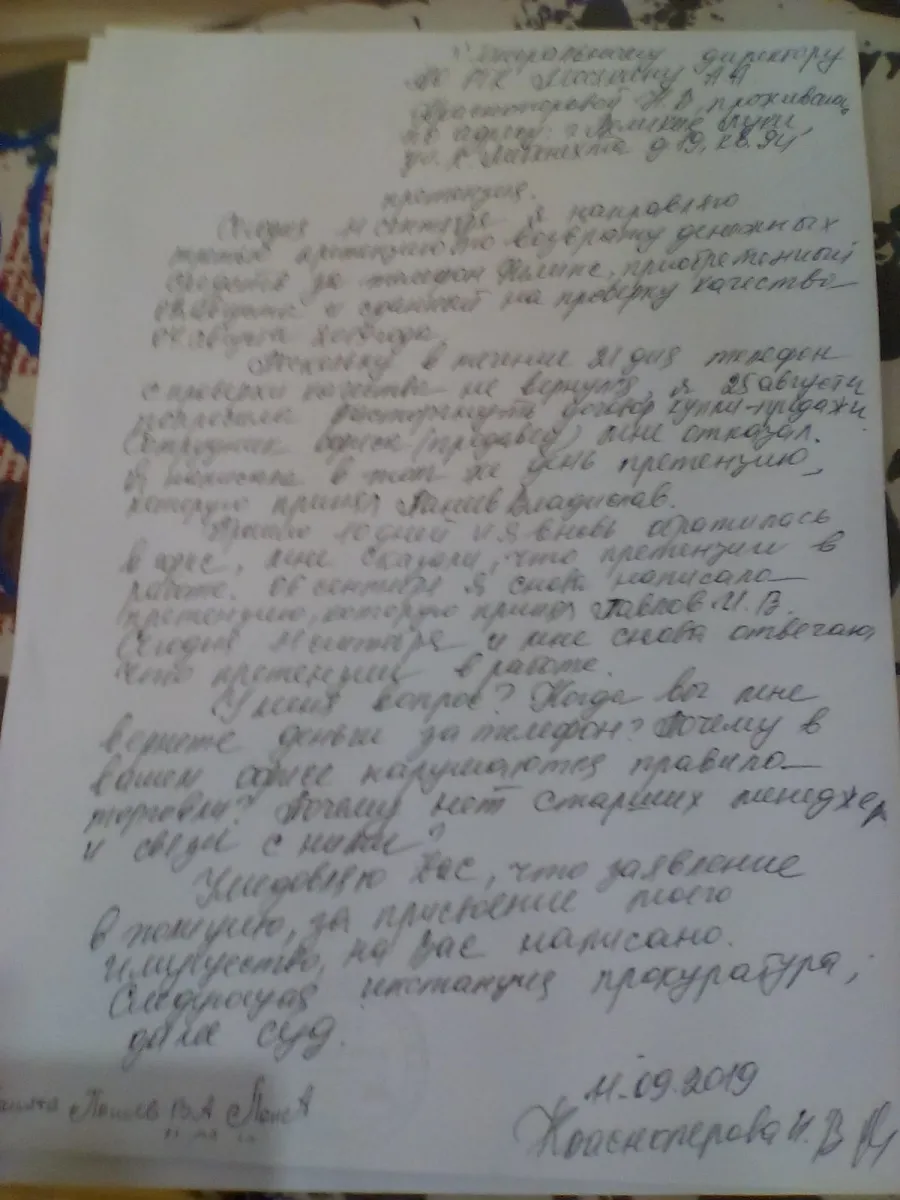 Генеральному директору
АО РТК Малышеву А А
Красноперовой И. В, проживающ
по адресу: г. Великие Луки,
ул. К. Либкнехта д 19, кв. 94
претензия.
Сегодня 11 сентября я направляю
третью претензию по возврату денежных
средств за телефон Филипс, приобретенный
августа и сданный на проверку качества
04 августа 2019 года.
Поскольку в течение 21 дня телефон
с проверки качества не вернулся, я 25 августа
попросила расторгнуть договор купли-продажи.
Сотрудник офиса (продавец) мне отказал.
Я написала в тот же день претензию,
которую принял Панёв Владислав.
Прошло 10 дней и я вновь обратилась
в офис, мне сказали, что претензии в
работе. 06 сентября я снова написала
претензию, которую принял Павлов И. В.
Сегодня 11 сентября и мне снова отвечаю,
что претензии в работе.
У меня вопрос? Когда вы мне
вернете деньги за телефон? Почему в
вашем офисе нарушаются правила
торговли? Почему нет старших менеджер
и связи с ними?
Уведовляю Вас, что заявление
в полицию, за присвоение моего
имущества, на Вас написано.
Следующая инстанция прокуратура,
далее суд.
11.09.2019
Красноперова И. В
В А